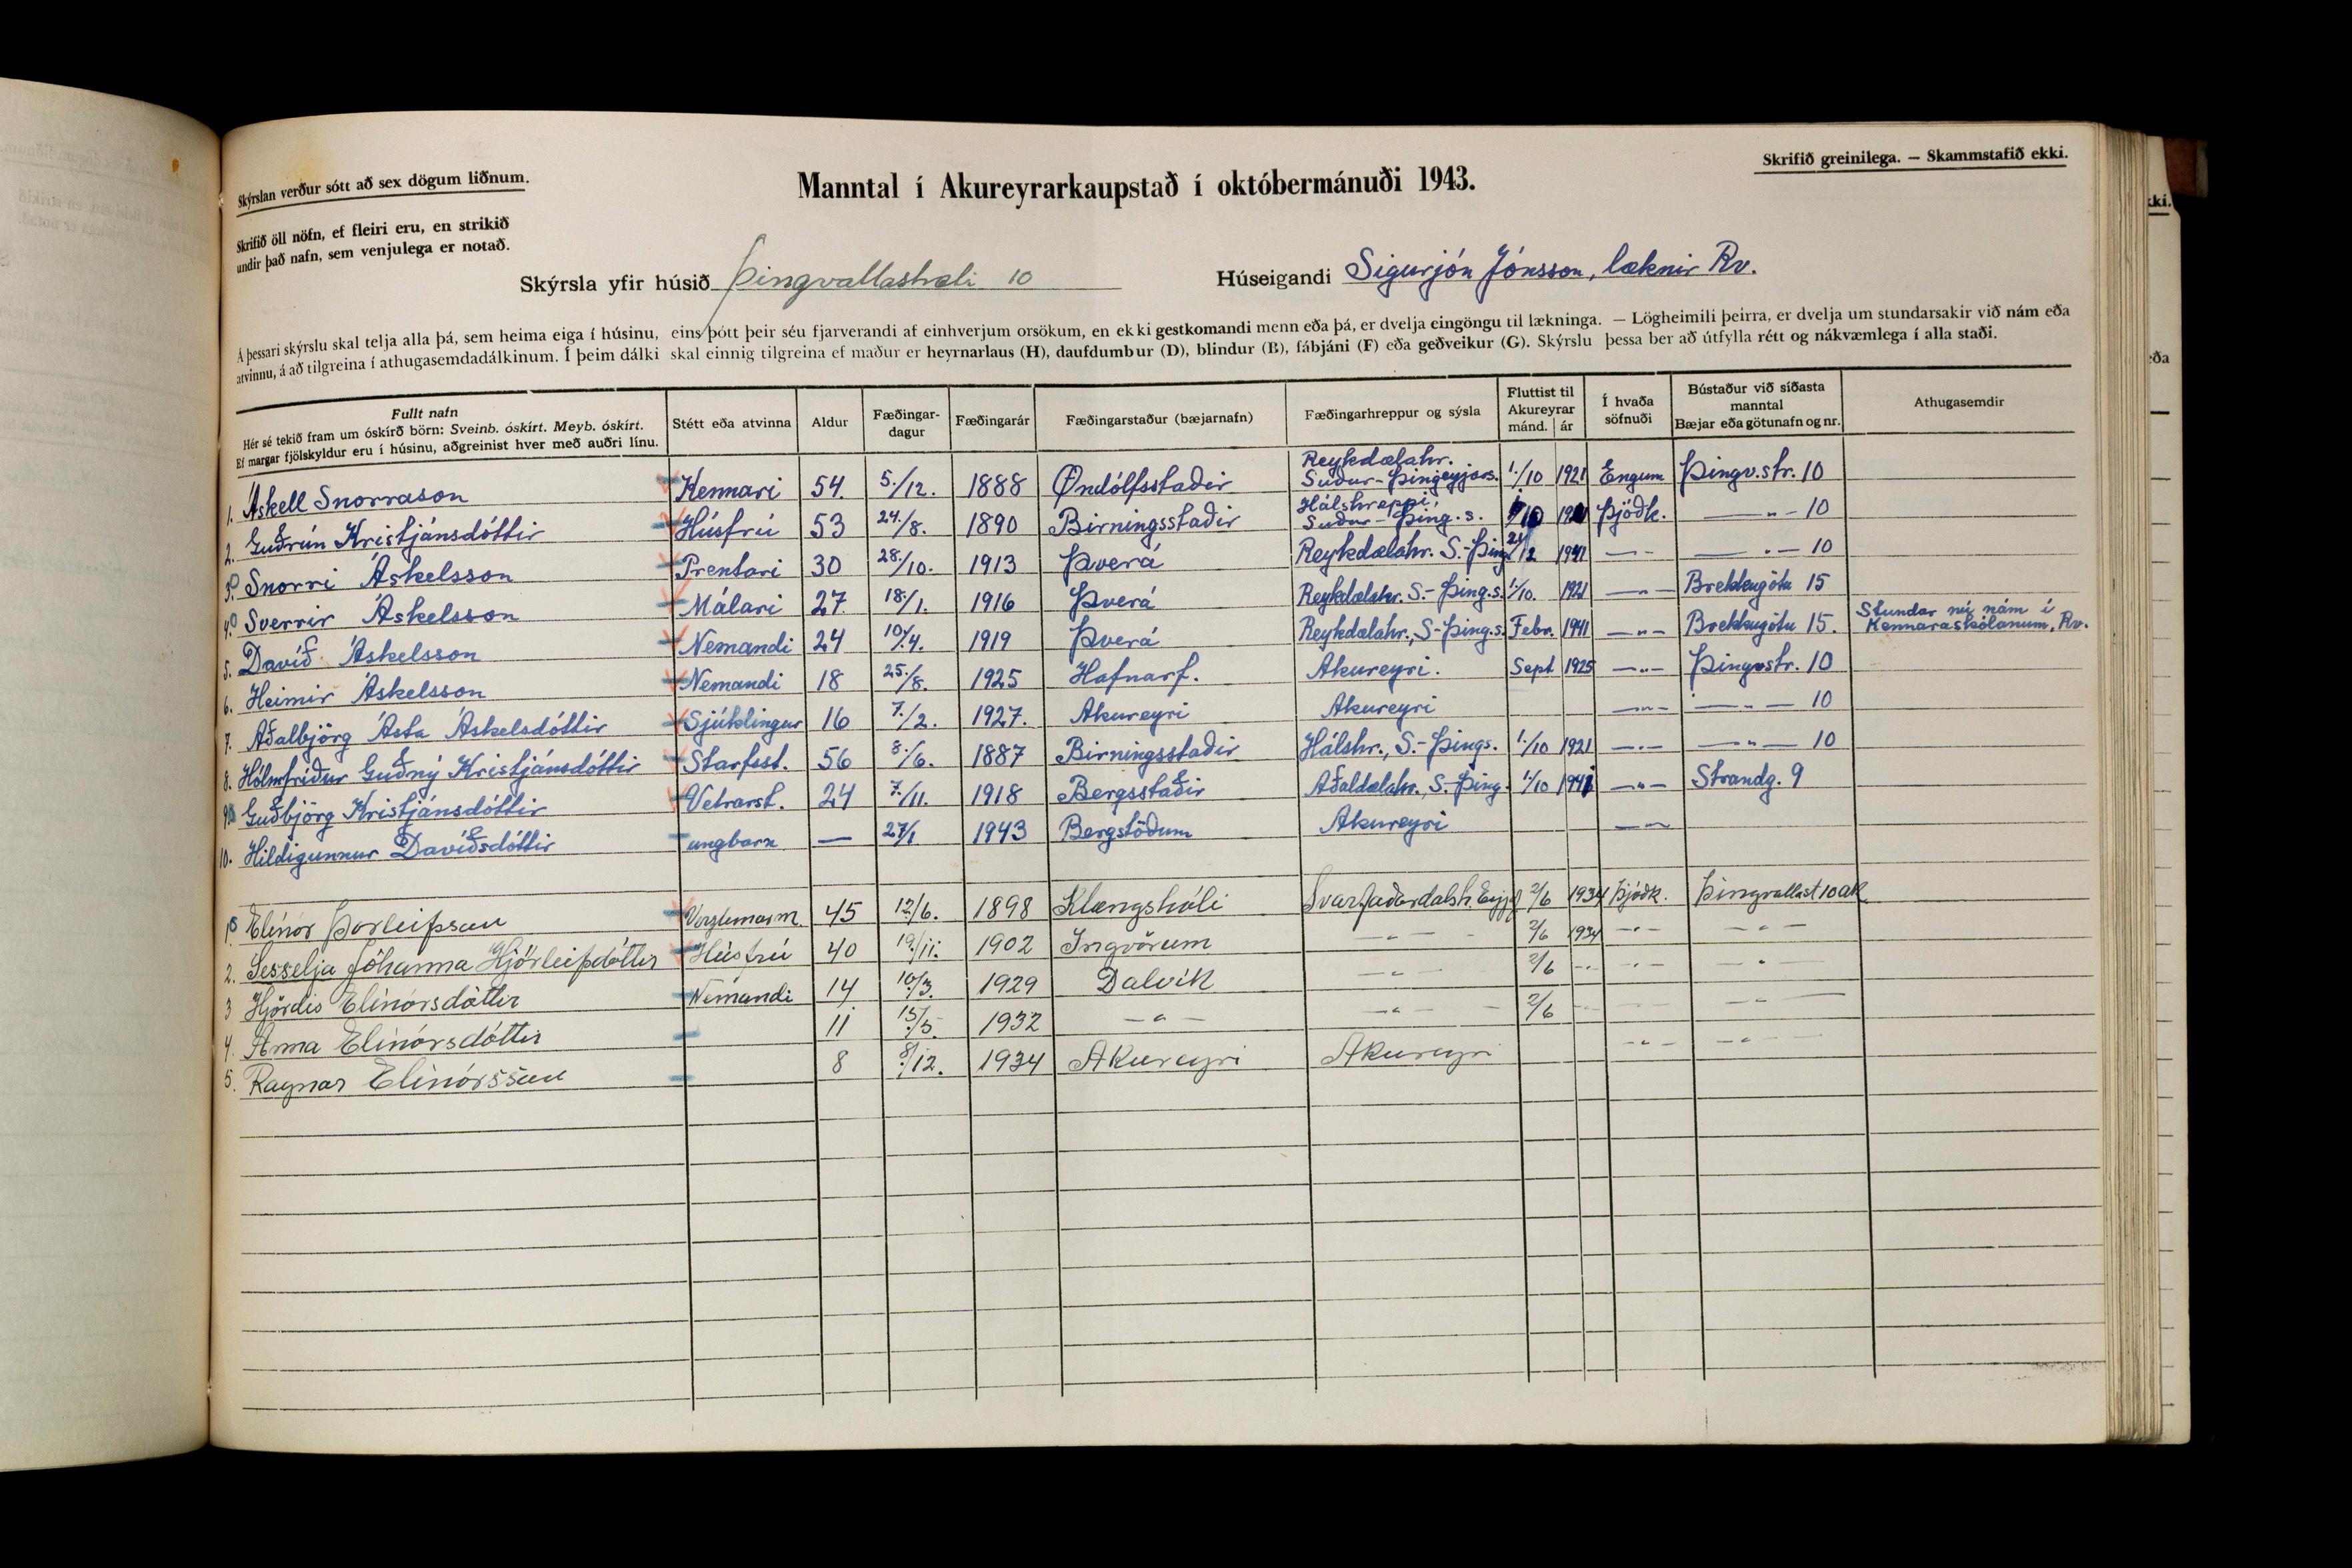 Skýrslan verður sótt að sex dögum liðnum.
Skrifið greinilega. — Skammstafið ekki.
Manntal í Akureyrarkaupstað í októbermánuði 1943.
Skrifið öll nöfn, ef fleiri eru, en strikið
undir það nafn, sem venjulega er notað.
Skýrsla yfir húsið Þingvallastræti 10
Húseigandi Sigurjón Jónsson, læknir Rv.
Á þessari skýrslu skal telja alla þá, sem heima eiga í húsinu, eins þótt þeir séu fjarverandi af einhverjum orsökum, en ekki gestkomandi menn eða þá, er dvelja eingöngu til lækninga. — Lögheimili þeirra, er dvelja um stundarsakir við nám eða
atvinnu, á að tilgreina í athugasemdadálkinum. Í þeim dálki skal einnig tilgreina ef maður er heyrnarlaus (H), daufdumbur (D), blindur (B), fábjáni (F) eða geðveikur (G). Skýrslu þessa ber að útfylla rétt og nákvæmlega í alla staði.
Fullt nafn
Hér sé tekið fram um óskírð börn: Sveinb. óskírt. Meyb. óskírt.
Ef margar fjölskyldur eru í húsinu, aðgreinist hver með auðri línu.
Stétt eða atvinna
Aldur
Fæðingar-
dagur
Fæðingarár
Fæðingarstaður (bæjarnafn)
Fæðingarhreppur og sýsla
Fluttist til
Akureyrar
mánd. ár
Í hvaða
söfnuði
Bústaður við síðasta
manntal
Bæjar eða götunafn og nr.
Athugasemdir
1. Áskell Snorrason Kennari 54. 5./12. 1888 Öndólfsstaðir Reykdælahr. Suður-Þingeyjars. 1./10 1921 Engum Þingv.str. 10
2. Guðrún Kristjánsdóttir Húsfrú 53 24./8. 1890 Birningsstaðir Hálshreppi, Suður-Þing.s. Þjóðk. —„— 10
3. Snorri Áskelsson Prentari 30 28./10. 1913 Þverá Reykdælahr. S.-Þing. 1941 —„— —„— 10
4. Sverrir Áskelsson Málari 27. 18./1. 1916 Þverá Reykdælahr. S.-Þing.s. 1./10. 1921 —„— Brekkugötu 15
5. Davíð Áskelsson Nemandi 24 10./4. 1919 Þverá Reykdælahr., S-Þing.s. Febr. 1941 —„— Brekkugötu 15. Stundar nú nám í Kennaraskólanum, Rv.
6. Heimir Áskelsson Nemandi 18 25./8. 1925 Hafnarf. Akureyri. Sept 1925 —„— Þingvstr. 10
7. Aðalbjörg Ásta Áskelsdóttir Sjúklingur 16 7./2. 1927. Akureyri Akureyri —„— —„— 10
8. Hólmfríður Guðný Kristjánsdóttir Starfsst. 56 8./6. 1887 Birningsstaðir Hálshr., S.-Þings. 1./10 1921 —„— —„— 10
9. Guðbjörg Kristjánsdóttir Vetrarst. 24 7./11. 1918 Bergsstaðir Aðaldælahr., S.-Þing. 1./10 —„— Strandg. 9
10. Hildigunnur Davíðsdóttir ungbarn — 27/1 1943 Bergstöðum Akureyri —„—
1 Elínór Þorleifsson Verzlunarm. 45 12/6. 1898 Klængshóli Svarfaðardalsh. Eyjf 2/6 1934 Þjóðk. Þingvallast 10 AK
2. Sesselja Jóhanna Hjörleifsdóttir Húsfrú 40 19/11. 1902 Ingvörum —„— 2/6 1934 —„— —„—
3 Hjördís Elínórsdóttir Nemandi 14 10/3. 1929 Dalvík —„— 2/6 —„— —„— —„—
4. Anna Elínórsdóttir 11 15/5 1932 —„— —„— 2/6 —„— —„— —„—
5. Ragnar Elínórsson 8 8/12. 1934 Akureyri Akureyri —„— —„—